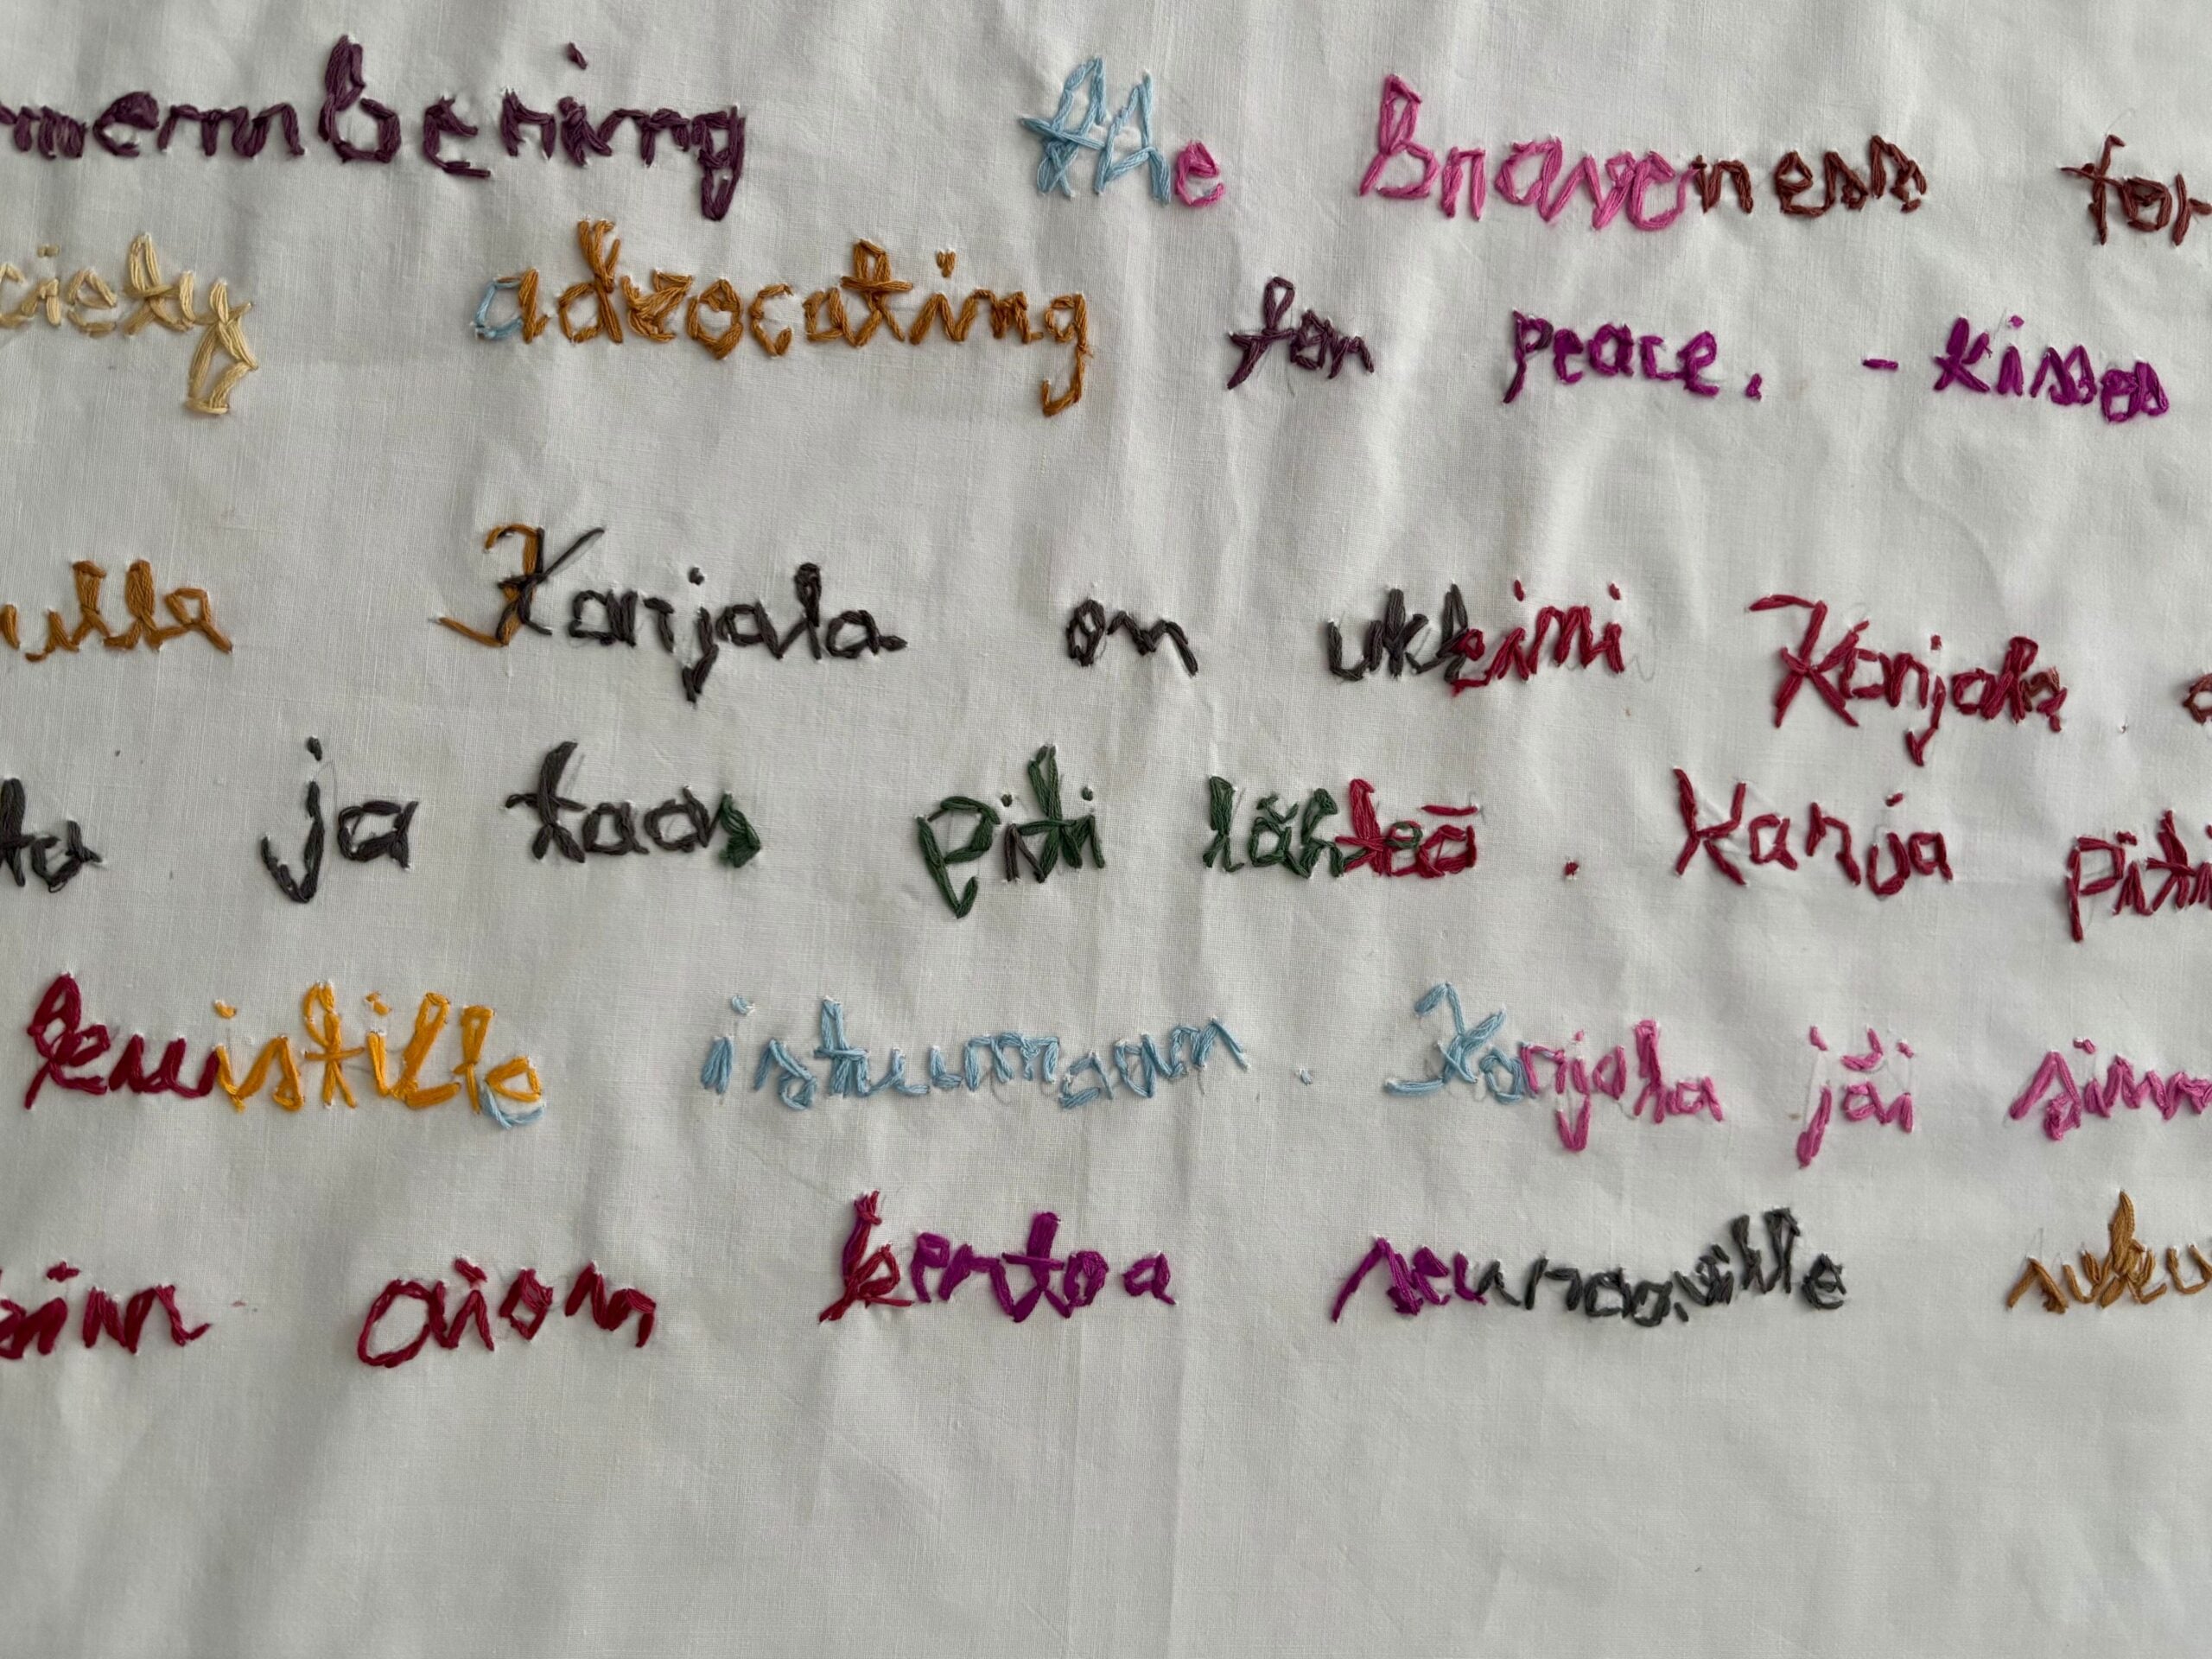 membering the braveness for
ciety advocating for peace. - kisses
ulla Karjala on ukkini Karjala.
ta ja taas piti lähteä. Karja piti
istumaan. Karjala jäi sinn
siin aion kertoa seuraaville suku